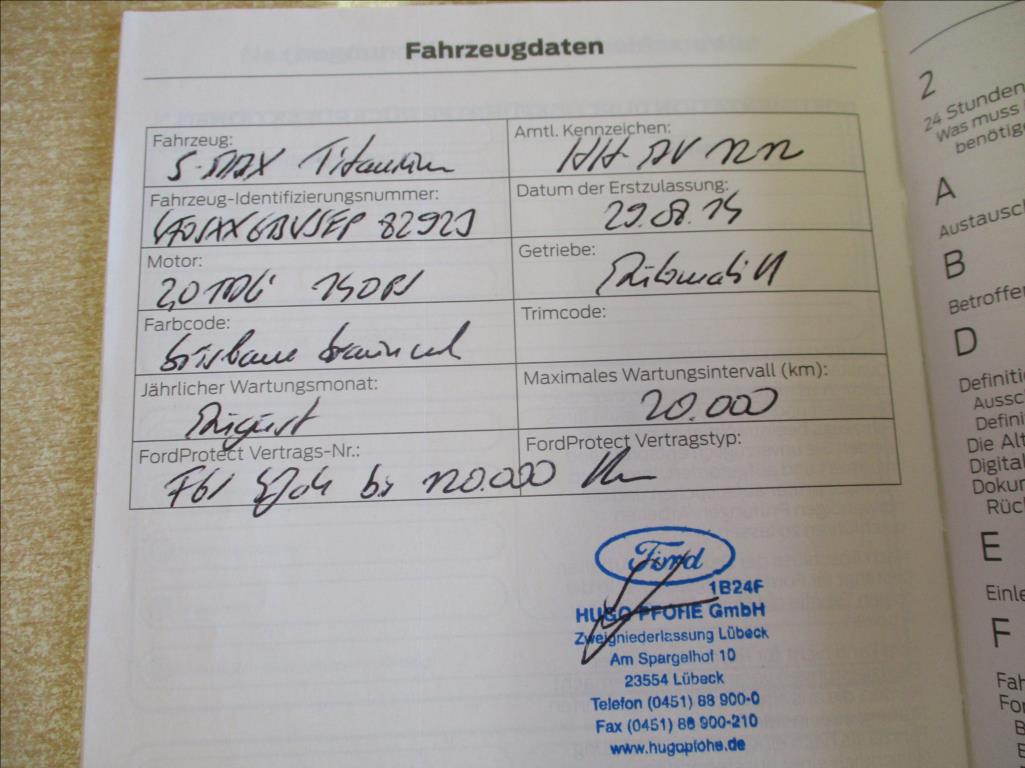 Fahrzeugdaten
Fahrzeug:
S-MAX Titanium
Amtl. Kennzeichen:
HH-AV
Fahrzeug-Identifizierungsnummer:
82923
Datum der Erstzulassung:
29.08.14
Motor:
2,0 TDCi 140 PS
Getriebe:
Automatik
Farbcode:
brisbane braun
Trimcode:
Jährlicher Wartungsmonat:
August
Maximales Wartungsintervall (km):
20.000
FordProtect Vertrags-Nr.:
FordProtect Vertragstyp:
bis 120.000 Km
Ford
1B24F
HUGO PFOHE GmbH
Zweigniederlassung Lübeck
Am Spargelhof 10
23554 Lübeck
Telefon (0451) 88 900-0
Fax (0451) 88 900-210
www.hugopfohe.de
2
24 Stunden
Was muss
benötig
A
Austausch
B
Betroffe
D
Definiti
Aussc
Defini
Die Alt
Digital
Dokur
Rüc
E
Einle
F
Fah
For